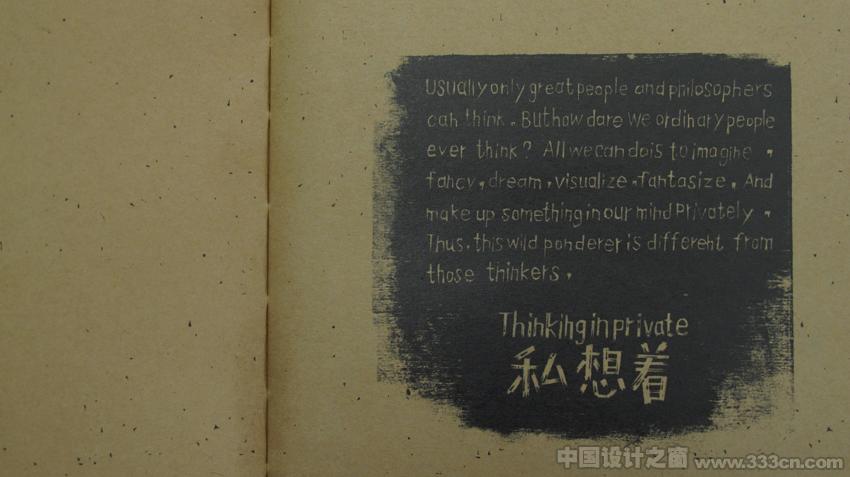 Usually only great people and philosophers
can think. But how dare we ordinary people
ever think? All we can do is to imagine ,
fancy, dream, visualize, fantasize. And
make up something in our mind Privately .
Thus, this wild ponderer is different from
those thinkers.
Thinking in private
私想着
中国设计之窗 www.333cn.com